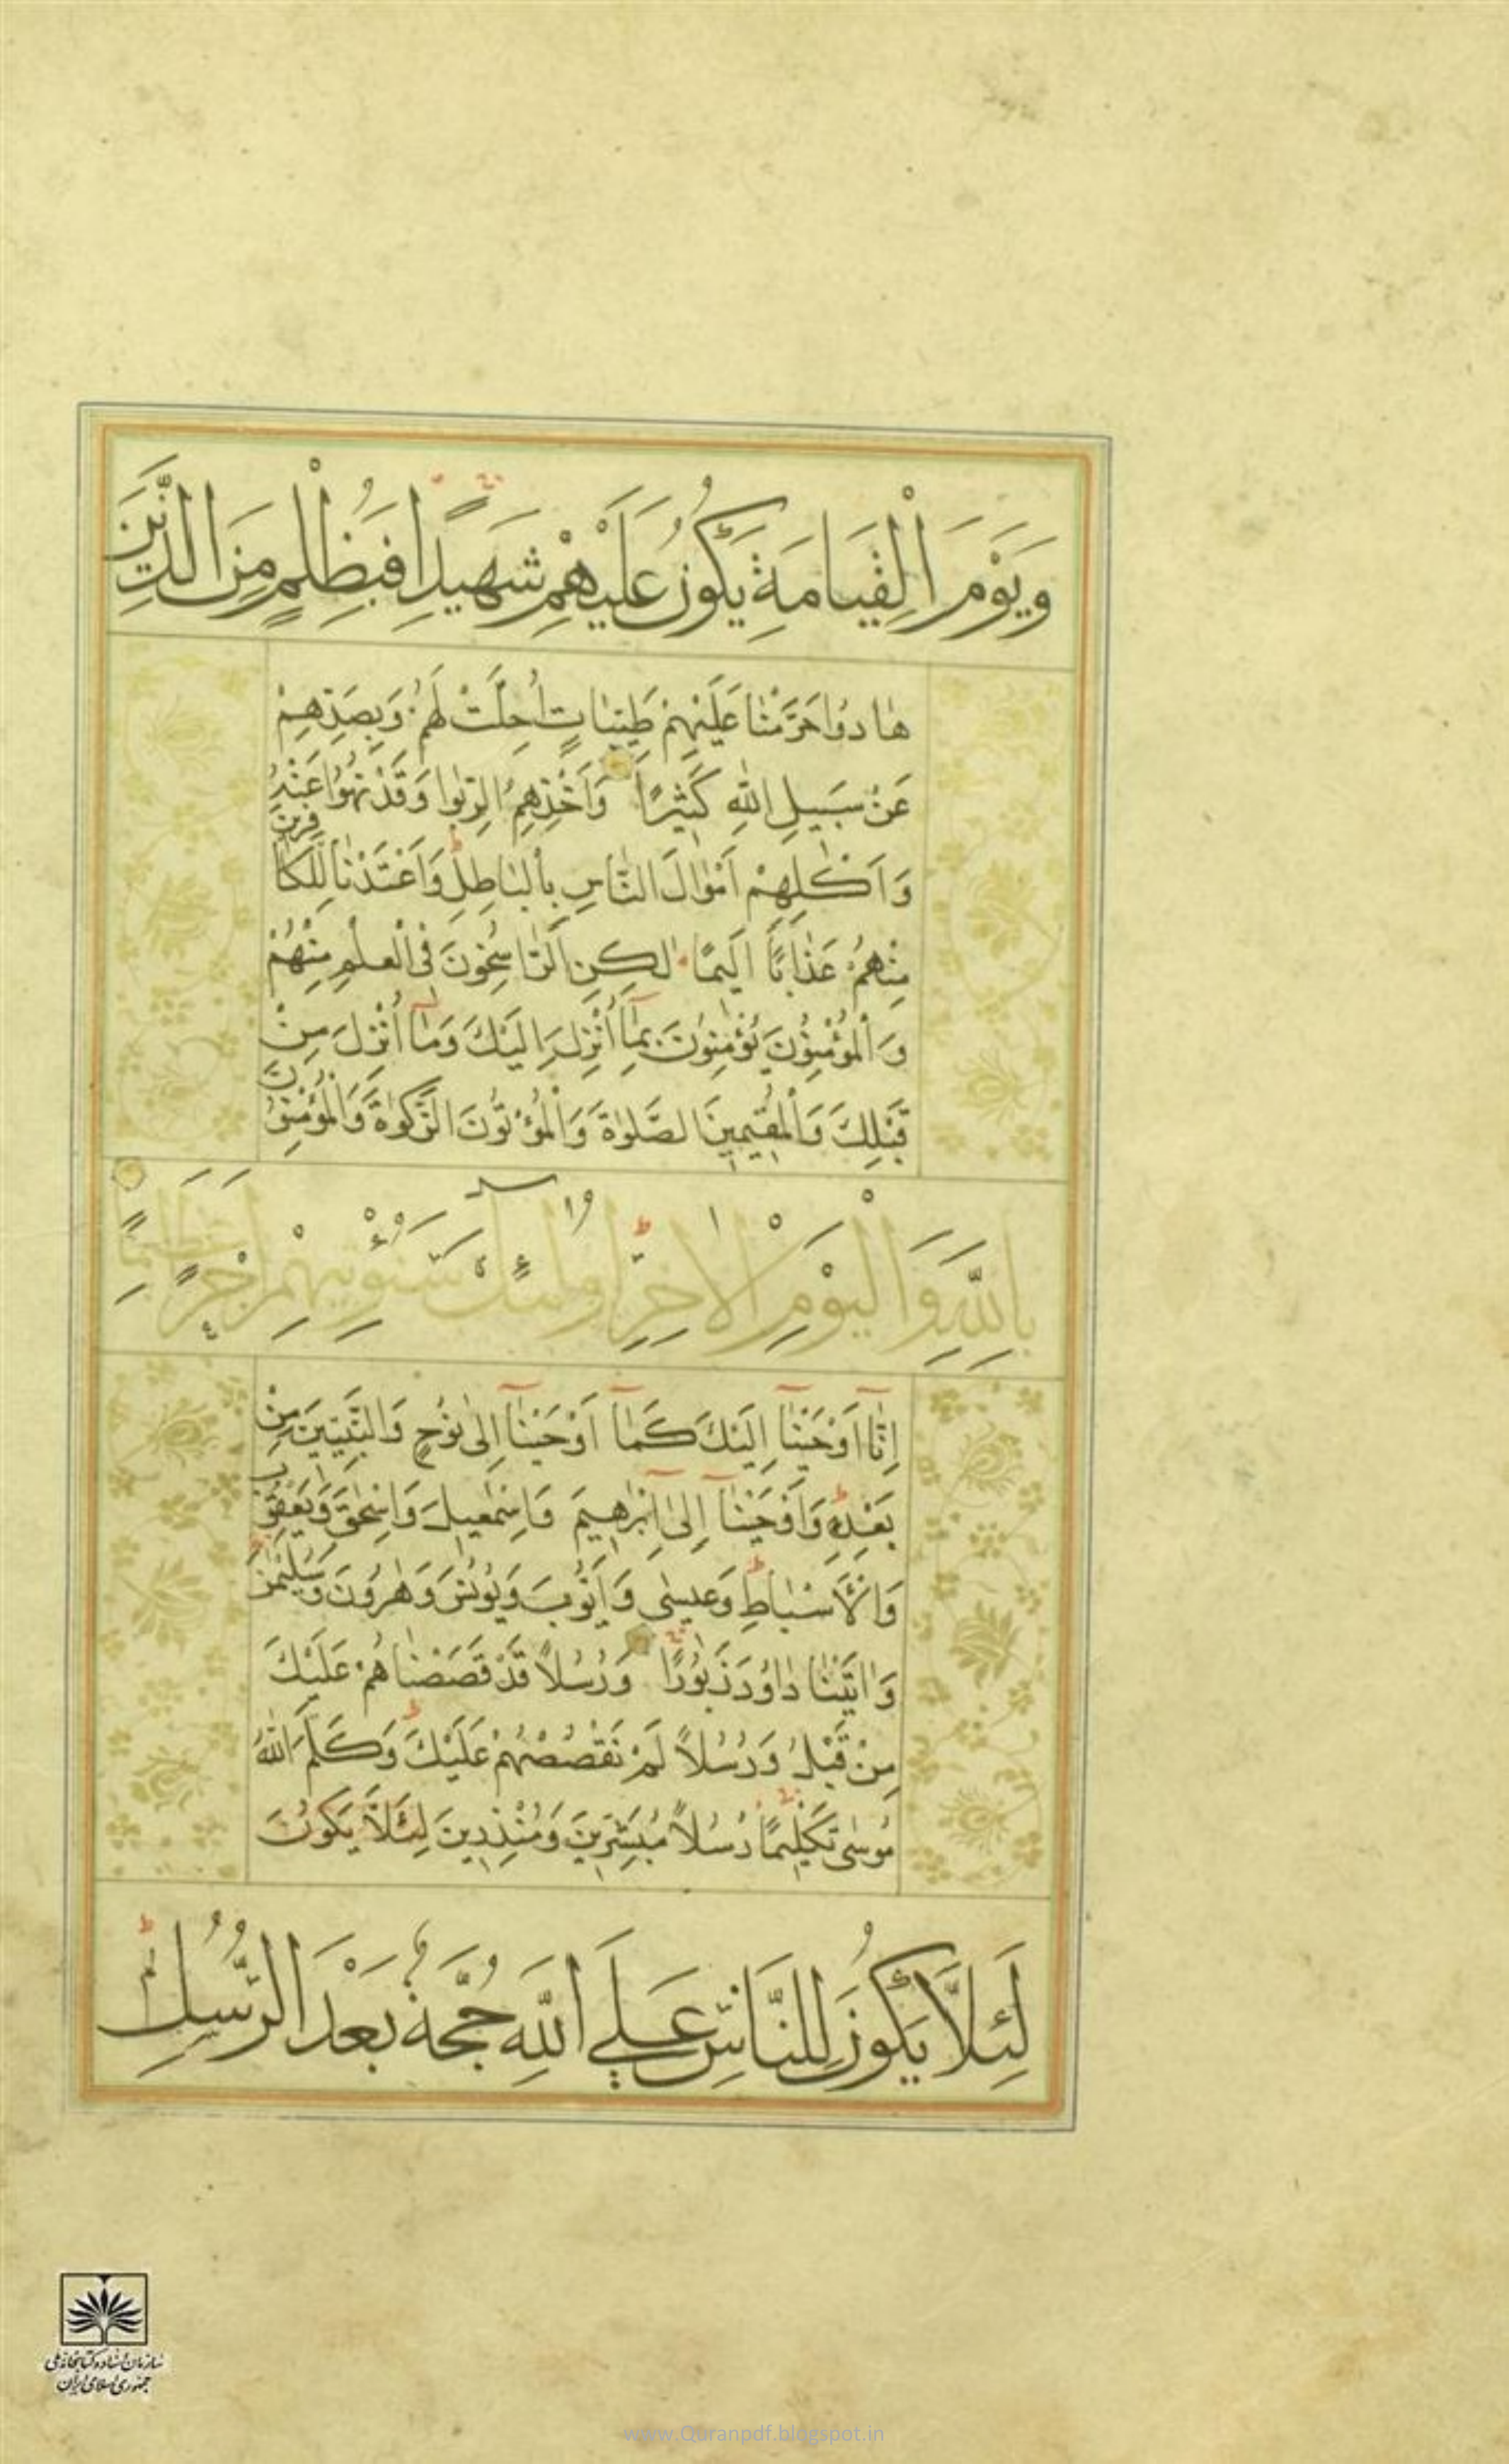 وَيَوْمَ الْقِيَامَةِ يَكُونُ عَلَيْهِمْ شَهِيدًا فَبِظُلْمٍ مِنَ الَّذِينَ
هَادُوا حَرَّمْنَا عَلَيْهِمْ طَيِّبَاتٍ أُحِلَّتْ لَهُمْ وَبِصَدِّهِمْ
عَنْ سَبِيلِ اللهِ كَثِيرًا وَأَخْذِهِمُ الرِّبٰوا وَقَدْ نُهُوا عَنْهُ
وَأَكْلِهِمْ أَمْوَالَ النَّاسِ بِالْبَاطِلِ وَأَعْتَدْنَا لِلْكَافِرِينَ
مِنْهُمْ عَذَابًا أَلِيمًا لٰكِنِ الرَّاسِخُونَ فِي الْعِلْمِ مِنْهُمْ
وَالْمُؤْمِنُونَ يُؤْمِنُونَ بِمَا أُنْزِلَ إِلَيْكَ وَمَا أُنْزِلَ مِنْ
قَبْلِكَ وَالْمُقِيمِينَ الصَّلٰوةَ وَالْمُؤْتُونَ الزَّكٰوةَ وَالْمُؤْمِنُونَ
بِاللهِ وَالْيَوْمِ الْآخِرِ أُولٰئِكَ سَنُؤْتِيهِمْ أَجْرًا عَظِيمًا
إِنَّا أَوْحَيْنَا إِلَيْكَ كَمَا أَوْحَيْنَا إِلٰى نُوحٍ وَالنَّبِيِّينَ مِنْ
بَعْدِهِ وَأَوْحَيْنَا إِلٰى إِبْرٰهِيمَ وَإِسْمٰعِيلَ وَإِسْحٰقَ وَيَعْقُوبَ
وَالْأَسْبَاطِ وَعِيسٰى وَأَيُّوبَ وَيُونُسَ وَهٰرُونَ وَسُلَيْمٰنَ
وَاٰتَيْنَا دَاوُدَ زَبُورًا وَرُسُلًا قَدْ قَصَصْنَاهُمْ عَلَيْكَ
مِنْ قَبْلُ وَرُسُلًا لَمْ نَقْصُصْهُمْ عَلَيْكَ وَكَلَّمَ اللهُ
مُوسٰى تَكْلِيمًا رُسُلًا مُبَشِّرِينَ وَمُنْذِرِينَ لِئَلَّا يَكُونَ
لِئَلَّا يَكُونَ لِلنَّاسِ عَلَى اللهِ حُجَّةٌ بَعْدَ الرُّسُلِ
سازمان اسناد و کتابخانه ملی
جمهوری اسلامی ایران
www.Quranpdf.blogspot.in